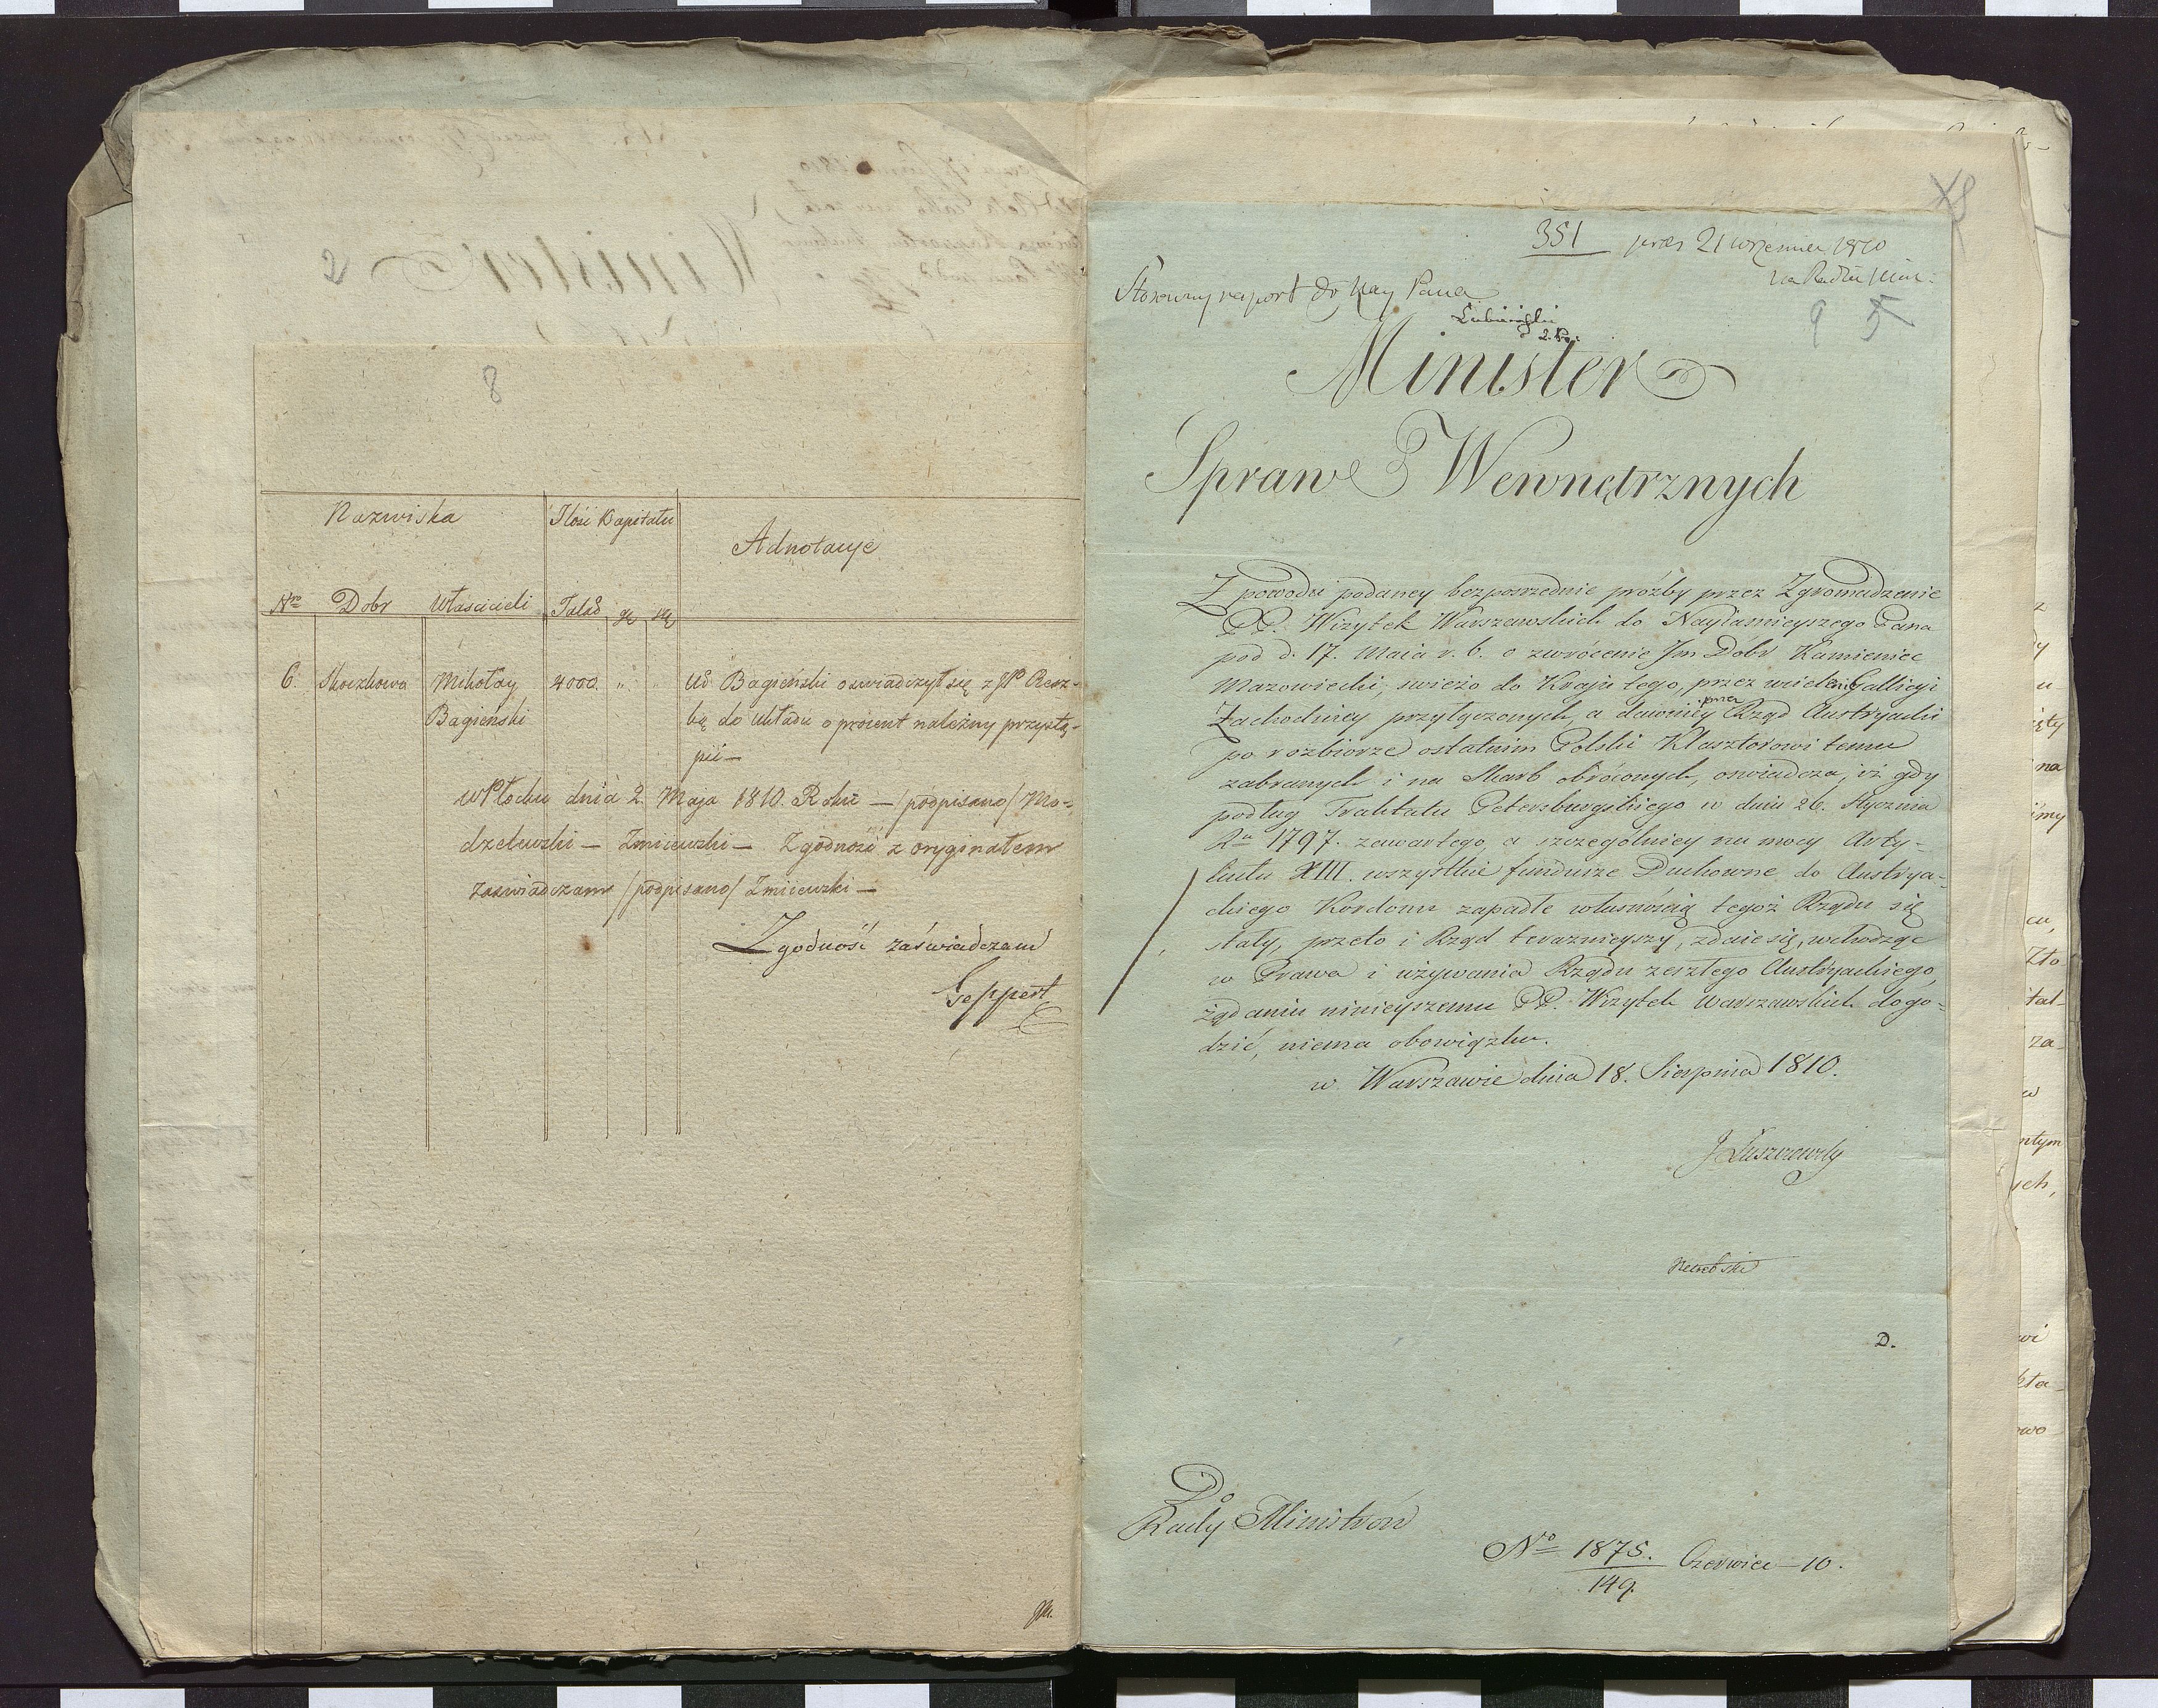 8
Nazwiska
Ilość Kapitału
Adnotacye
Nro Dobr Właścicieli Talar gr
6. Skoczkowo Mikołay 4000 " " Ur Bagieński oswiadczył się z JP
Bagieński bę do układu o procent należny przystą-
pić —
w Płocku dnia 2 Maja 1810. Roku — /podpisano/ Mo-
dzelewski — Zmiiewski — Zgodność z oryginałem
zaswiadczam /podpisano/ Zmiiewski —
Zgodność zaświadczam
Geppert
351 21 września 1810
na Radzie Min.
Stosowny raport do Nay Pana
Łubieński
9 5
Minister
Spraw Wewnętrznych
Z powodu podaney bezpośrzednie próźby przez Zgromadzenie
PP. Wizytek Warszawskich do Nayiaśnieyszego Pana
pod d. 17. Maia r. b. o zwrócenie Im Dóbr Kamieniec
Mazowiecki, swieżo do Kraju tego, przez wcielenie Gallicyi
Zachodniey przyłączonych, a dawniey przez Rząd Austryacki
po rozbiorze ostatnim Polski Klasztorowi temu
zabranych i na Skarb obróconych, oswiadcza, iż gdy
podług Traktatu Petersburgskiego w dniu 26. Stycznia
Ru 1797. zawartego, a szczególniey na mocy Arty-
kułu XIII. wszystkie fundusze Duchowne do Austrya-
ckiego Kordonu zapadłe własnością tegoż Rządu się
stały, przeto i Rząd terazńieyszy, zdaie się, wchodząc
w Prawa i używania Rządu zeszłego Austryackiego,
żądaniu ninieyszemu PP. Wizytek Warszawskich dogo-
dzić, niema obowiązku.
w Warszawie dnia 18. Sierpnia 1810.
J Łuszczewsky
D.
Do
Rady Ministrów
No 1875. Czerwiec — 10.
149.